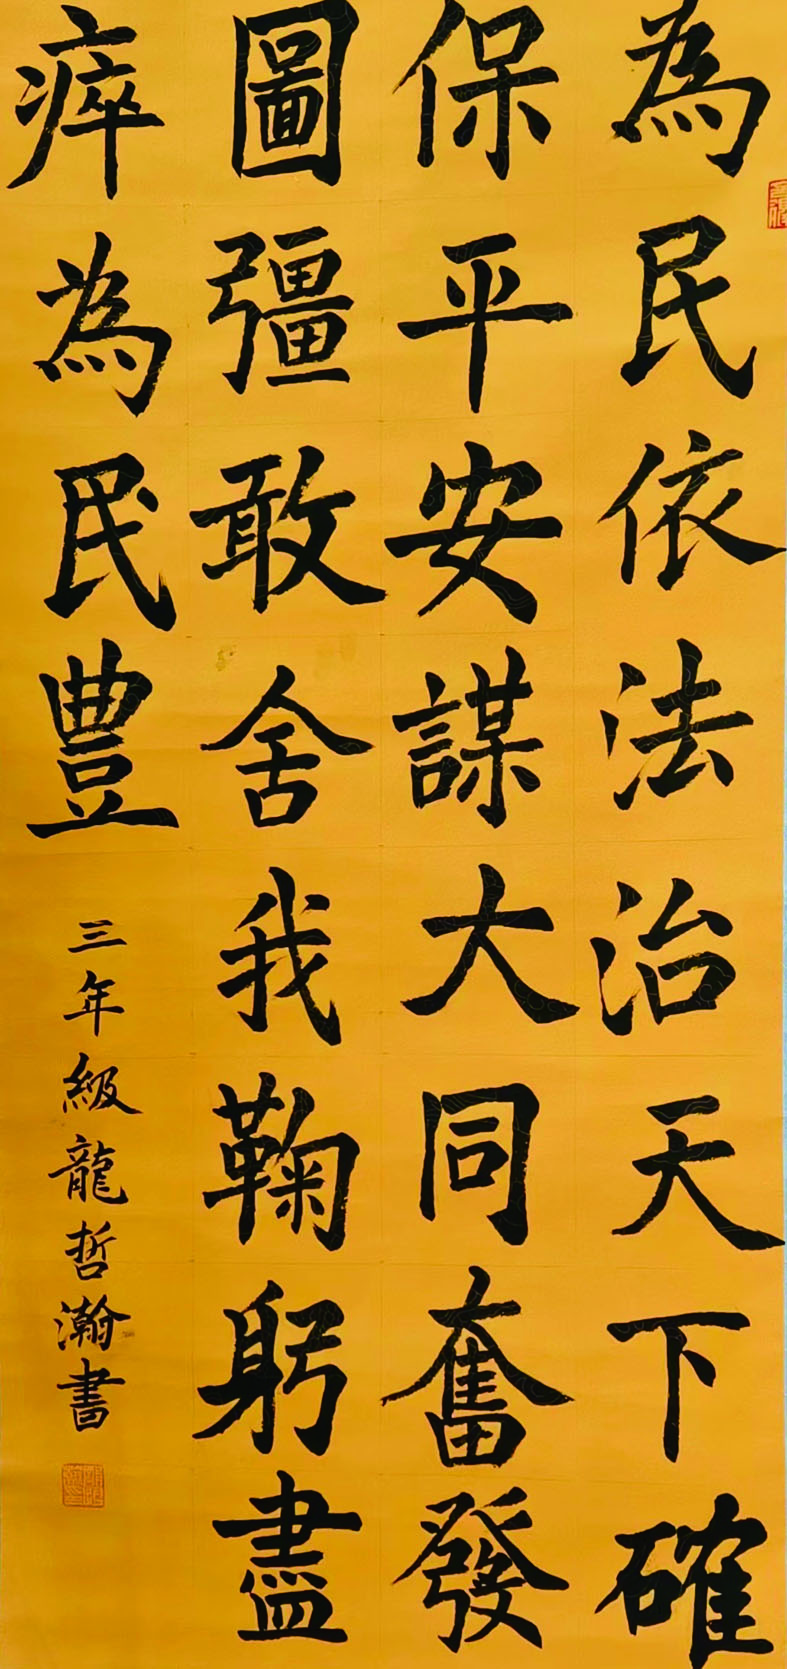 為民依法治天下確
保平安謀大同奮發
圖彊敢舍我鞠躬盡
瘁為民豊
三年級龍哲瀚書